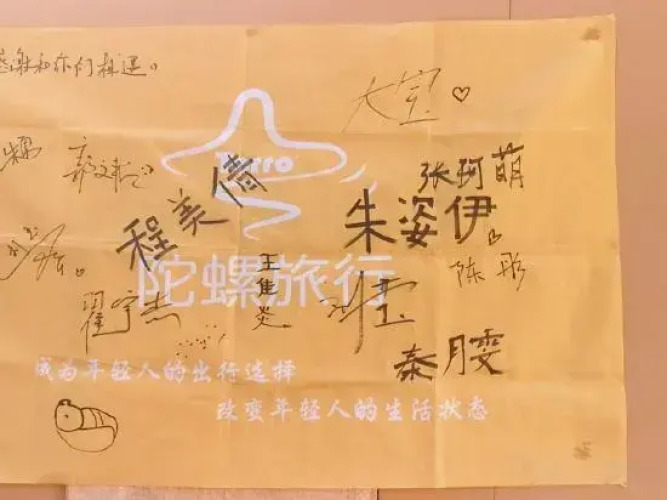 感谢和你们相遇。
大宝
Tuoro
张珂萌
程美倩
朱姿伊
陈彤
王隹炎
陀螺旅行
翟宇杰
秦月雯
成为年轻人的出行选择
改变年轻人的生活状态